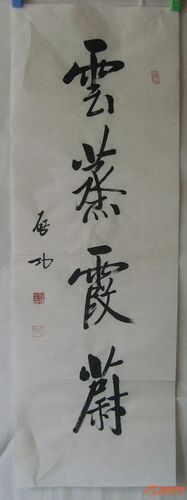 雲蒸霞蔚
启功